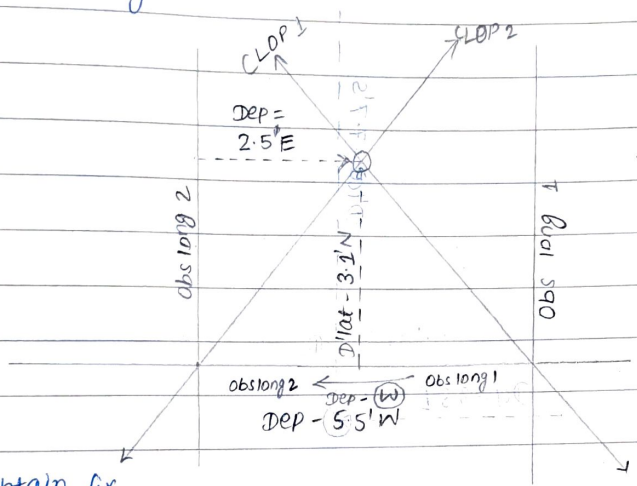 CLOP 1
CLOP 2
Dep =
2.5'E
obs long 2
D'lat - 3.1'N
obs long 1
obs long 2 ← obs long 1
Dep - W
Dep - 5.5' W